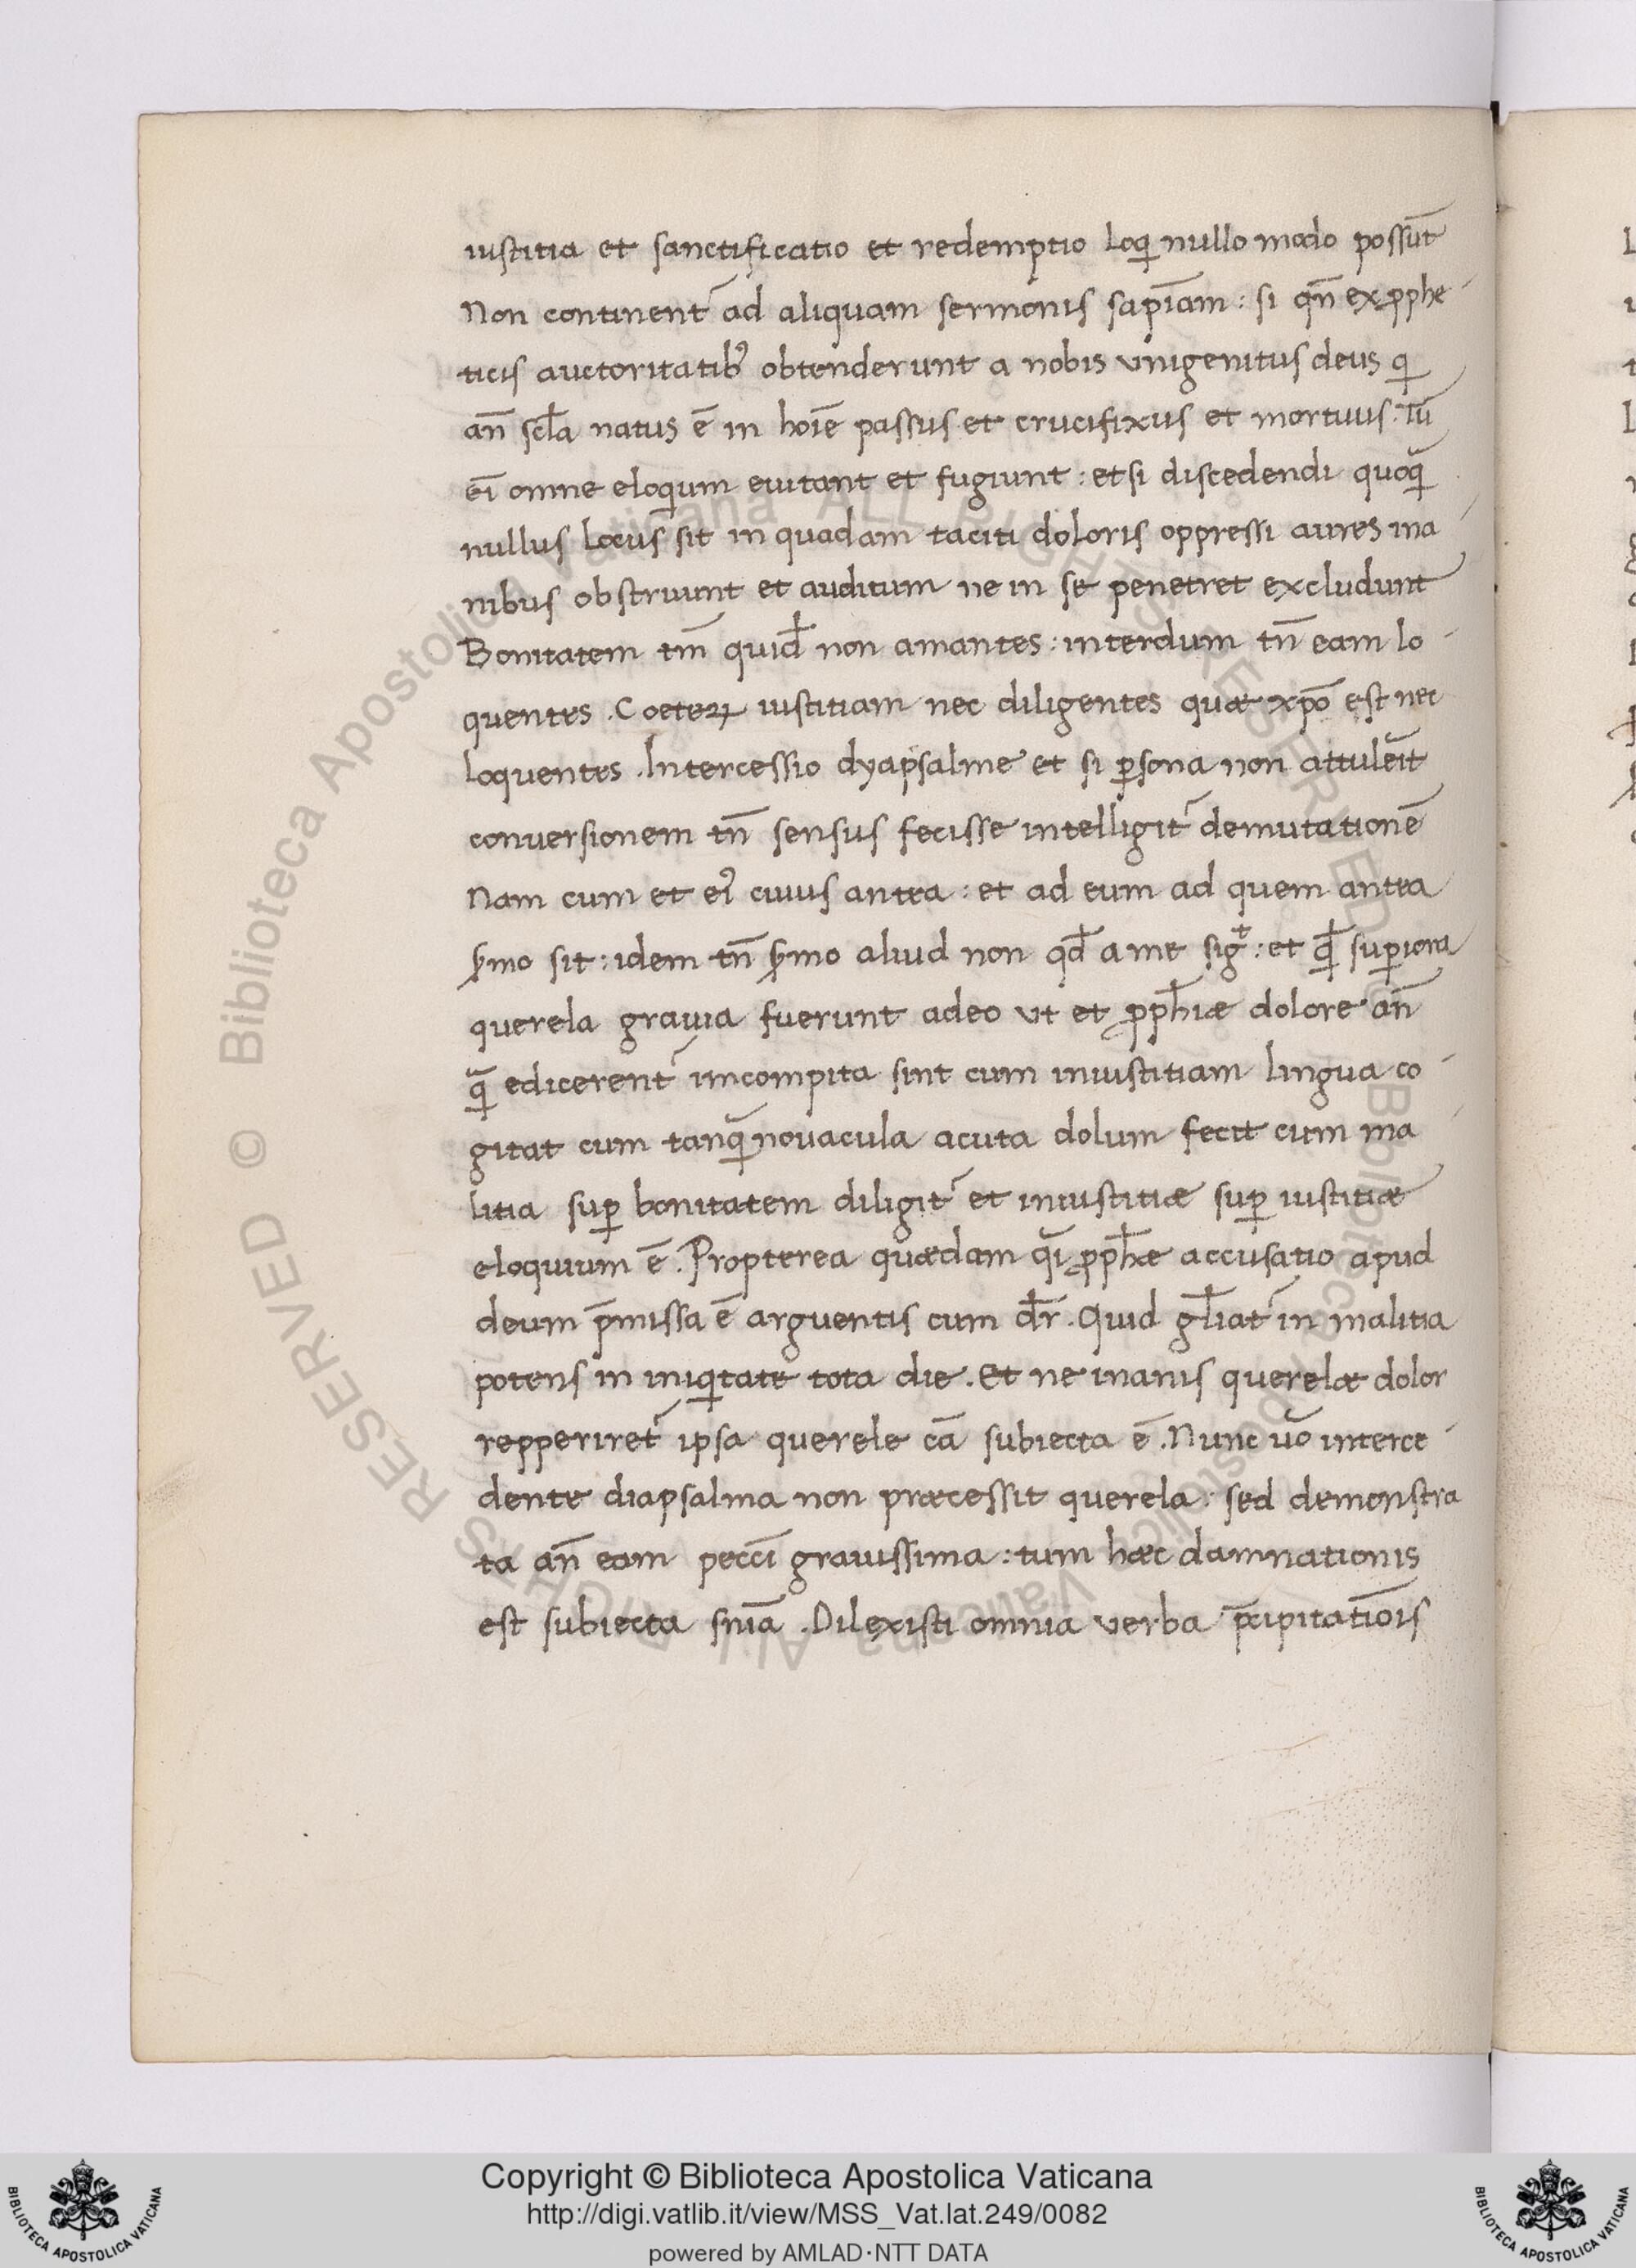 iustitia et sanctificatio et redemptio loqi nullo modo possūt
Non continent᷑ ad aliquam sermonis sapīam : si qn̄ ex ꝓphe
ticis auctoritatib᷒ obtenderunt a nobis vnigenitus deus qi
an̄ scl̄a natus ē in hoīe passus et crucifixus et mortuus : tū
eī omne eloqium euitant et fugiunt : et si discedendi quoqꝫ
nullus locus sit in quadam taciti doloris oppressi aures ma
nibus obstruunt et auditum ne in se penetret excludunt
Bonitatem tm̄ quid̄ non amantes : interdum tn̄ eam lo
quentes . Coeteꝝ iustitiam nec diligentes quæ xp̄o est nec
loquentes . Intercessio dyapsalme et si ꝑsona non attulēit
conuersionem tn̄ sensus fecisse intelligit᷑ demutationē
Nam cum et ei᷒ cuius antea : et ad eum ad quem antea
ẜmo sit : idem tn̄ ẜmo aliud non qd̄ a me sigᵗ : et ql̄ suꝑiora
querela grauia fuerunt adeo vt et ꝓph̄iæ dolore an̄
qᷓ edicerent᷑ imcompita sint cum iniustitiam lingua co
gitat cum tanqᷓ nouacula acuta dolum fecit cum ma
litia suꝑ bonitatem diligit᷑ et iniustitiæ suꝑ iustitiæ
eloquium ē . Propterea quædam qᷓi ꝓph̄æ accusatio apud
deum p̄missa ē arguentis cum dr̄ . Quid gl̄iat᷑ in malitia
potens in iniqitate tota die . Et ne inanis querelæ dolor
repperiret᷑ ipsa querele cā subiecta ē . Nunc ūo interce
dente diapsalma non præcessit querela : sed demonstra
ta an̄ eam pecc̄i grauissima : tum hæc damnationis
est subiecta sniā . Dilexisti omnia verba p̄cipitatiōis
Copyright © Biblioteca Apostolica Vaticana
http://digi.vatlib.it/view/MSS_Vat.lat.249/0082
powered by AMLAD·NTT DATA
BIBLIOTECA APOSTOLICA VATICANA
BIBLIOTECA APOSTOLICA VATICANA
© Biblioteca Apostolica Vaticana ALL RIGHTS RESERVED © Biblioteca Apostolica Vaticana ALL RIGHTS RESERVED